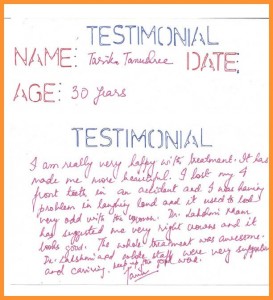 TESTIMONIAL
NAME: Tarika Tanushree DATE:
AGE: 30 years
TESTIMONIAL
I am really very happy with treatment. It has
made me more beautiful. I lost my 4
front teeth in an accident and I was having
problem in laughing loud and it used to look
very odd with the crowns. Dr. Lakshmi Mam
has suggested me very right crowns and it
looks good. The whole treatment was awesome.
Dr. Lakshmi and entire staff were very supportive
and caring. keep up the good work.